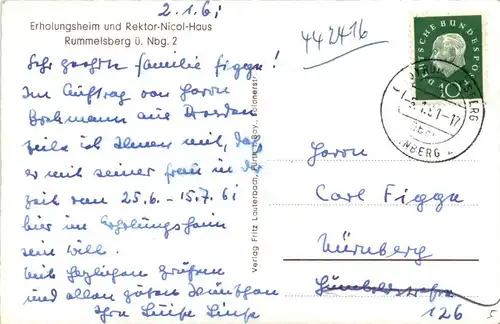 2.1.61
Erholungsheim und Rektor-Nicol-Haus
Rummelsberg ü. Nbg. 2
Sehr geehrte Familie Figge!
Im Auftrag von Herrn
Bochmann aus Dresden
teile ich Ihnen mit, daß
er mit seiner Frau in der
Zeit vom 25.6. - 15.7.61
hier im Erholungsheim
sein will.
Mit herzlichen Grüßen
und allen guten Wünschen
Ihre Luise
Verlag Fritz Lauterbach, Fürth/Bay.
442416
DEUTSCHE BUNDESPOST
10
Herrn
Carl Figge
Nürnberg
Humboldtstraße
126